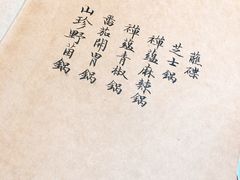 蘸碟
芝士鍋
禪蘊麻辣鍋
禪蘊青椒鍋
番茄開胃鍋
山珍野菌鍋